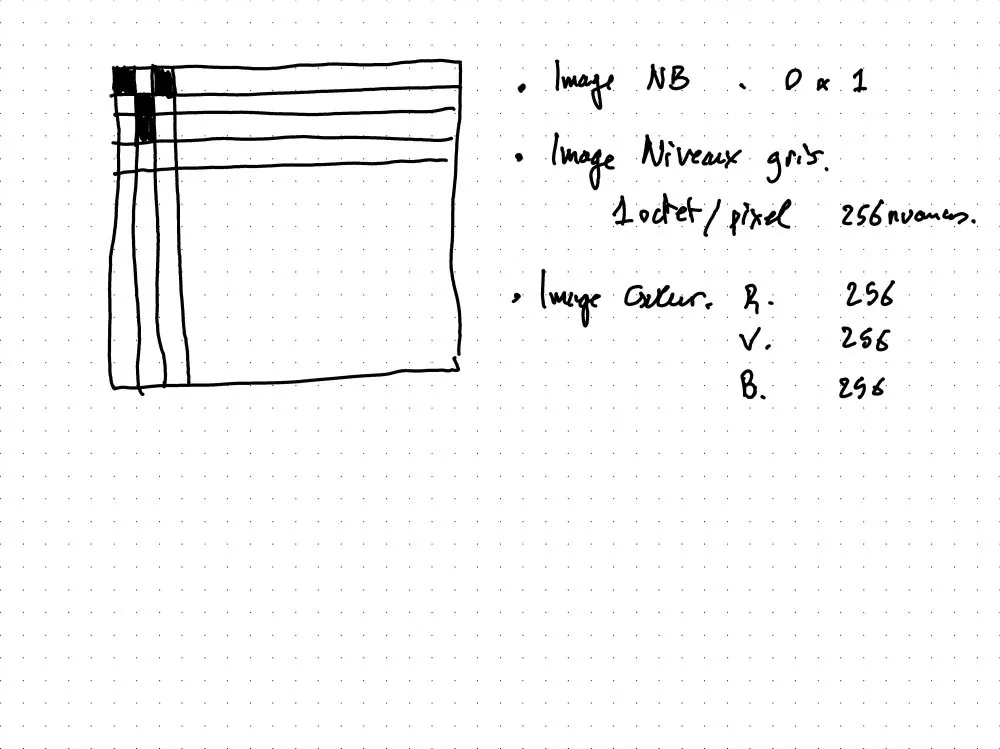 • Image NB . 0 ou 1
• Image Niveaux gris.
1 octet / pixel 256 nuances.
• Image Couleur. R. 256
V. 256
B. 256